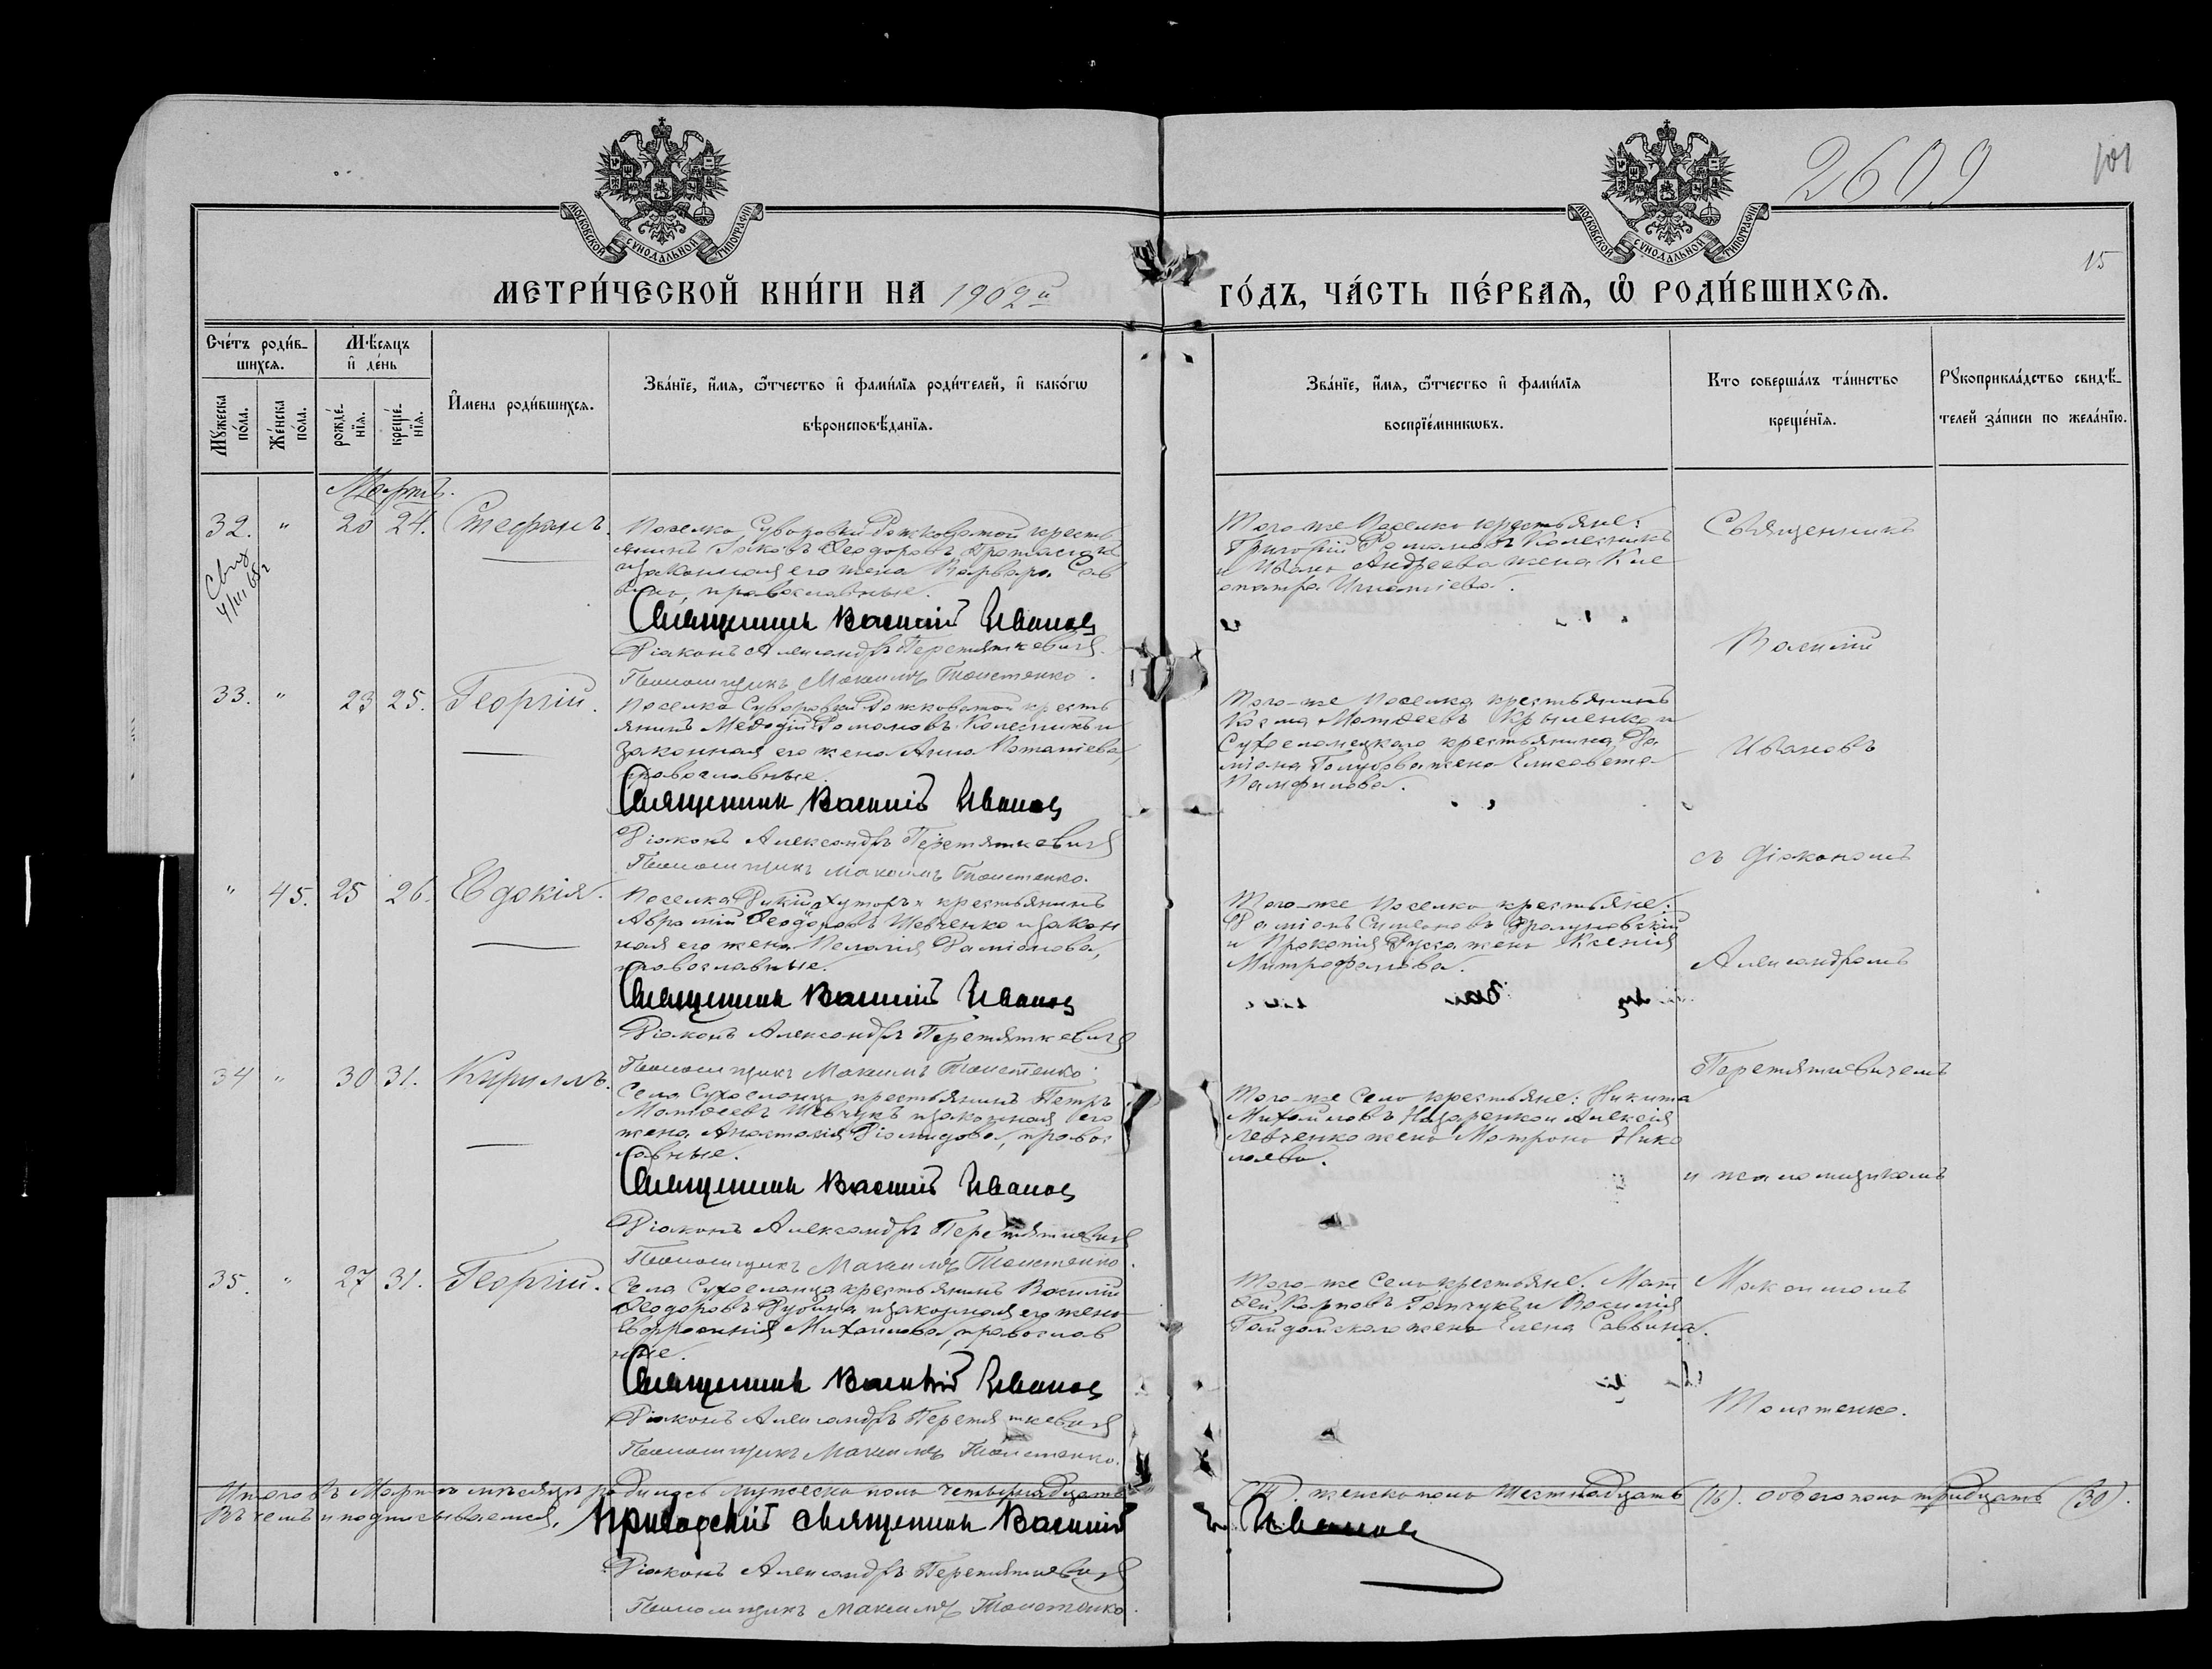 2609
101
15
МОСКОВСКОЙ СѴНОДАЛЬНОЙ ТИПОГРАФІИ
МОСКОВСКОЙ СѴНОДАЛЬНОЙ ТИПОГРАФІИ
МЕТРИ́ЧЕСКОЙ КНИ́ГИ НА 1902й ГО́ДЪ, ЧА́СТЬ ПЕ́РВАѦ, Ѡ РОДИ́ВШИХСѦ.
Сче́тъ роди́в-
шихсѧ.
Мѣ́сѧцъ
и҆ де́нь
Мꙋ́жеска
по́ла.
Же́нска
по́ла.
рожде́-
нїѧ.
креще́-
нїѧ.
И҆мена роди́вшихсѧ.
Зва́нїе, и҆́мѧ, ѻ҆́тчество и҆ фами́лїѧ роди́телей, и҆ како́гѡ
вѣроисповѣ́данїѧ.
Зва́нїе, и҆́мѧ, ѻ҆́тчество и҆ фами́лїѧ
воспрїе́мникѡвъ.
Кто соверша́лъ та́инство
креще́нїѧ.
Рꙋкоприкла́дство свидѣ́-
телей за́писи по жела́нїю.
Мартъ.
32. " 20 24. Стефанъ.
Поселка Суворовки крестъ
янинъ Яковъ Ѳеодоровъ
законная его жена Варвара Сав
вина, православные.
Священникъ Василій Ивановъ
Діаконъ Александръ Перетяткевичъ
Псаломщикъ Максимъ Толстенко.
Того-же Поселка крестьяне:
Григорій Романовъ Колесникъ
и Ивана Андреева жена Кле
опатра Игнатіева.
Священникъ
Василій
Ивановъ
съ діакономъ
Александромъ
Перетяткевичемъ
и псаломщикомъ
Максимомъ
Толстенко.
33. " 23 25. Георгій.
Поселка Суворовки крестъ
янинъ Меѳодій Романовъ Колесникъ и
законная его жена Анна Потапіева,
православные.
Священникъ Василій Ивановъ
Діаконъ Александръ Перетяткевичъ
Псаломщикъ Максимъ Толстенко.
Того-же Поселка крестьянинъ
Косма Матѳеевъ Крыленко и
крестьянина Да
міана Голубова жена Елисавета
Памфилова.
" 45. 25 26. Евдокія.
Поселка Дикій хуторъ крестьянинъ
Аврамій Ѳеодоровъ Шевченко и закон
ная его жена Пелагія Даміанова,
православные.
Священникъ Василій Ивановъ
Діаконъ Александръ Перетяткевичъ
Псаломщикъ Максимъ Толстенко.
Того-же Поселка крестьяне:
Даміанъ
и Прокопія жена Ксенія
Митрофанова.
34 " 30 31. Кириллъ.
Села крестьянинъ Петръ
Матѳеевъ Шевчукъ и законная его
жена Анастасія Діомидова, правос
лавные.
Священникъ Василій Ивановъ
Діаконъ Александръ Перетяткевичъ
Псаломщикъ Максимъ Толстенко.
Того-же Села крестьяне: Никита
Михайловъ Назаренко и Алексія
Левченко жена Матрона Нико
лаева.
35. " 27 31. Георгій.
Села крестьянинъ Василій
Ѳеодоровъ и законная его жена
Евфросинія Михайлова, православ
ные.
Священникъ Василій Ивановъ
Діаконъ Александръ Перетяткевичъ
Псаломщикъ Максимъ Толстенко.
Того-же Села крестьяне: Мат
ѳей Карповъ и Василія
жена Елена Саввина.
Итого въ Мартѣ мѣсяцѣ родилось мужеска пола четырнадцать (14). женска пола Шестнадцать (16). обоего пола тридцать (30).
Въ чемъ и подписываемся, Приходскій священникъ Василій Ивановъ
Діаконъ Александръ Перетяткевичъ
Псаломщикъ Максимъ Толстенко.